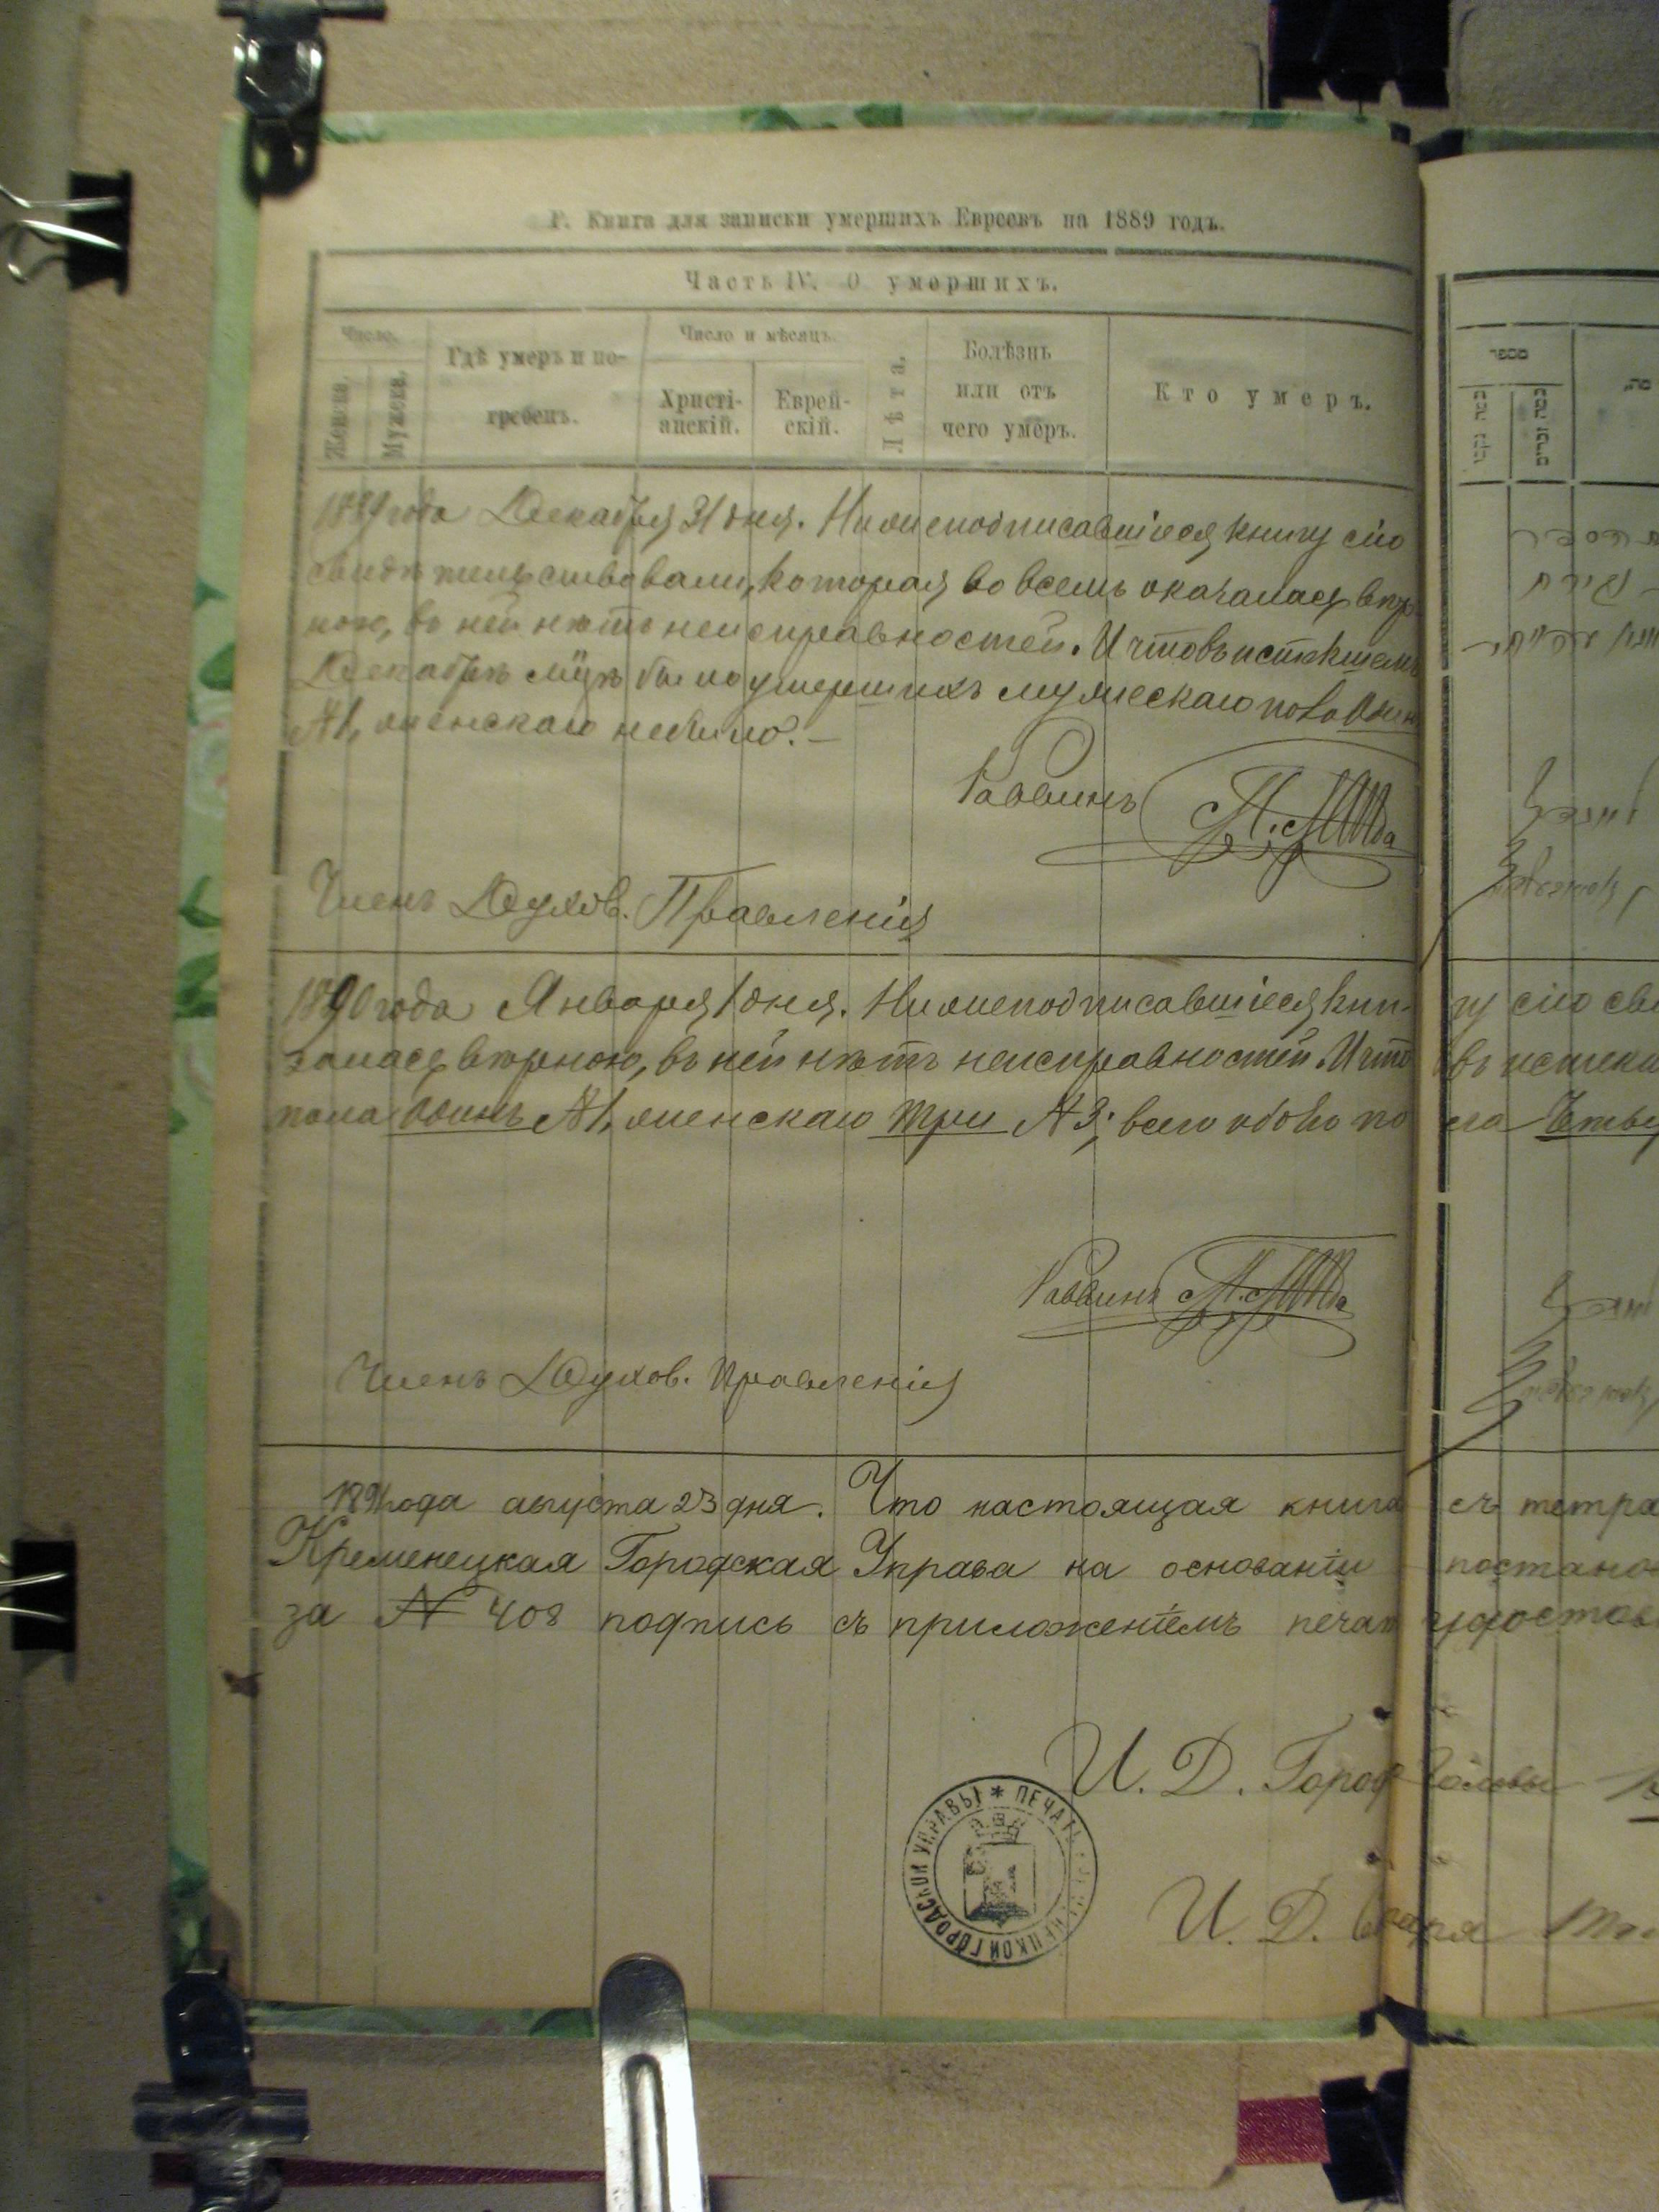 Книга для записки умершихъ Евреевъ на 1889 годъ.
Часть IV. О умершихъ.
Число.
Женска.
Мужеска.
Гдѣ умеръ и по-
гребенъ.
Число и мѣсяцъ.
Христі-
анскій.
Еврей-
скій.
Лѣта.
Болѣзнь
или отъ
чего умеръ.
Кто умеръ.
1889 года Декабря 31 дня. Нижеподписавшіеся книгу сію
свидѣтельствовали, которая во всемъ оказалась вѣр
ною, въ ней нѣтъ неисправностей. И что въ истекшемъ
Декабрѣ мцѣ было умершихъ мужескаго пола Одинъ
№ 1, женскаго небыло. —
Раввинъ
Членъ Духов. Правленія
1890 года Января 1 дня. Нижеподписавшіеся кни- гу сію сви
залась вѣрною, въ ней нѣтъ неисправностей. И что въ истекш
пола Одинъ № 1, женскаго Три № 3; всего обоего по ла Четы
Раввинъ
Членъ Духов. Правленія
1891 года августа 23 дня. Что настоящая книга съ тетра
Кременецкая Городская Управа на основаніи постанов
за № 408 подпись съ приложеніемъ печати удостов
И. Д. Город Головы
И. Д. Секретаря
ПЕЧАТЬ КРЕМЕНЕЦКОЙ ГОРОДСКОЙ УПРАВЫ *